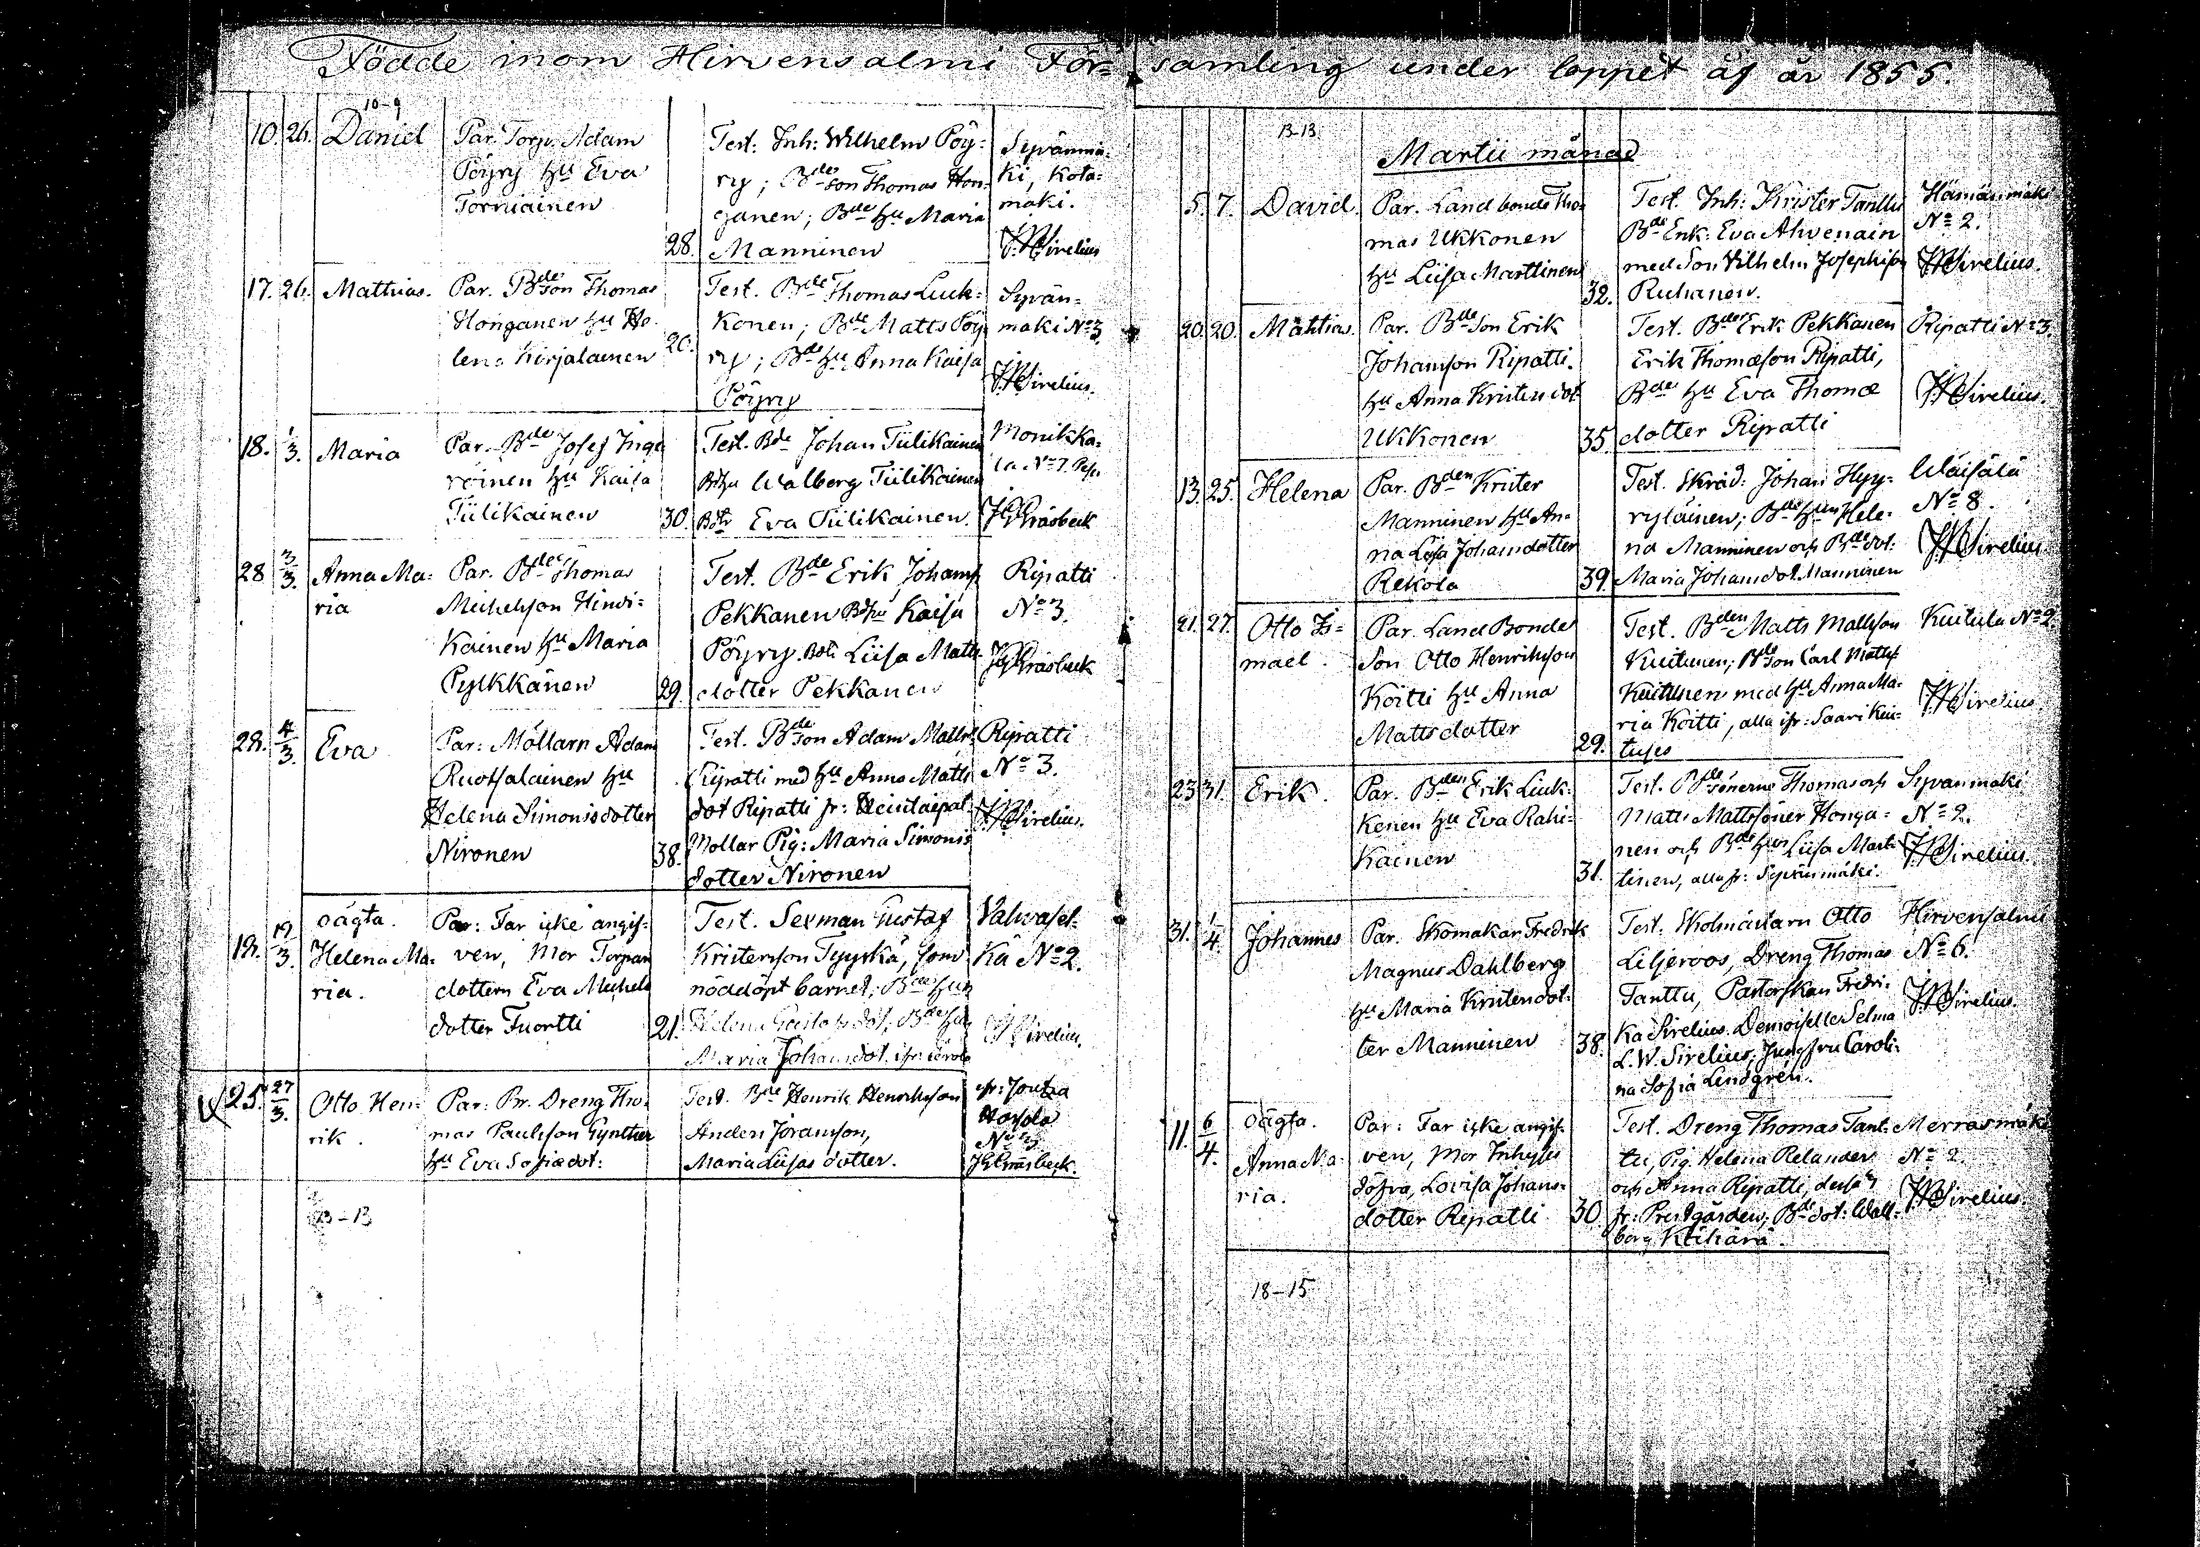 Födde inom Hirvensalmi För= samling under loppet af år 1855.
10-9
10. 26. Daniel
Par. Torp. Adam
Pöyry hu Eva
Torniainen
28.
Test. Inh: Wilhelm Pöy=
ry; Bdeson Thomas Hon=
ganen; Bde hu Maria
Manninen
Syvänmä=
ki, Kota=
mäki.
Sirelius
17. 26. Mathias.
Par. Bdeson Thomas
Honganen hu He=
lena Kirjalainen
20.
Test. Bde Thomas Luck=
konen; Bde Matts Pöy
ry; Bde hu Anna Kaisa
Pöyry
Syvän=
mäki No 3
Sirelius.
18. 1/3. Maria
Par. Bde Josef Inge
roinen hu Kaisa
Tiilikainen
30.
Test. Bde Johan Tiilikainen
Bdhu Walberg Tiilikainen
Bdtr Eva Tiilikainen.
Monikka=
la No 7.
Gråsbeck
28 3/3. Anna Ma=
ria
Par. Bde Thomas
Michelson Hinvi=
kainen hu Maria
Pylkkänen
29.
Test. Bde Erik Johans
Pekkanen Bdhu Kaisa
Pöyry. Bdt. Liisa Matts
dotter Pekkanen
Ripatti
No 3.
Gråsbeck
28. 4/3. Eva
Par: Möllarn Adam
Ruotsalainen hu
Helena Simonsdotter
Nironen
38.
Test. Bdeson Adam Matts
Ripatti med hu Anna Matts
dot Ripatti fr:
Mollar Pig: Maria Simons
dotter Nironen
Ripatti
No 3.
Sirelius.
18. 19/3.
oägta.
Helena Ma=
ria.
Par: Far icke angif=
ven, Mor Torpare
dottern Eva Michels
dotter Tuortti
21.
Test. Sexman Gustaf
Kristersson Tyyskä, som
nöddöpt barnet; Bde hun
Helena Gustafsdot; Bde hu
Maria Johansdot.
Valwasel=
kä No 2.
Sirelius.
25. 27/3. Otto Hen=
rik.
Par: Br. Dreng Tho=
mas Paulsson Gynther
hu Eva Sofiædot:
Test. Bde Henrik Henriksson
Anders Joransson,
Maria Liisas dotter.
fr: Joutsa
No 3
Gråsbeck.
13-13
13-13
Martii månad
5. 7. David.
Par. Landbonde Tho
mas Ukkonen
hu Liisa Marttinen
32.
Test. Inh: Krister Tanttu
Bde Enk: Eva Ahvenain
med Son Vilhelm Josephsson
Ruhanen.
Hämänmäki
No 2.
Sirelius.
20. 20. Mathias.
Par. Bdeson Erik
Johansson Ripatti.
hu Anna Kristersdot
Ukkonen
35.
Test. Bden Erik Pekkanen
Erik Thomæson Ripatti,
Bdes hu Eva Thomæ
dotter Ripatti
Ripatti No 3.
Sirelius.
13. 25. Helena
Par. Bden Krister
Manninen hu An=
na Lisa Johansdotter
Rekola
39.
Test. Skräd: Johan Hyy=
ryläinen; Bdes hun Hele=
na Manninen och Bdedot:
Maria Johansdot. Manninen
Wäisälä
No 8.
Sirelius
21. 27. Otto Is=
mael.
Par. Land Bonde
Son Otto Henriksson
Koitti hu Anna
Mattsdotter
29.
Test. Bden Matts Mattsson
Kuitunen; Bdeson Carl Mattss
Kuitunen med hu Anna Ma=
ria Koitti, alla ifr: Saari Kui=
tuss
Kuitula No 2
Sirelius.
23. 31. Erik.
Par. Bden Erik Liuk=
konen hu Eva Rahi=
kainen
31.
Test. Bdesönerne Thomas och
Matts Mattssöner Honga=
nen och Bdes hus Liisa Mart=
tinen, alla fr: Syvänmäki.
Syvanmäki
No 2.
Sirelius.
31. 1/4. Johannes
Par. Skomakar Fredrik
Magnus Dahlberg
hu Maria Kristersdot=
ter Manninen
38.
Test: Skolmästarn Otto
Liljeroos, Dreng Thomas
Tanttu, Pastorskan Fredri=
ka Sirelius. Demoiselle Selma
L. W. Sirelius, Jungfru Caroli=
na Sofia Lendgrén.
Hirvensalmi
No 6.
Sirelius.
11. 6/4.
oägta.
Anna Ma=
ria.
Par: Far icke angif=
ven, Mor Inhyses
Lovisa Johans=
dotter Ripatti
30.
Test. Dreng Thomas Tant=
tu, Pig. Helena Relander
och Anna Ripatti,
fr: Prestgården; Bdedot: Wall=
borg Kiiharä.
Merrasmäki
No 2.
Sirelius.
18-15